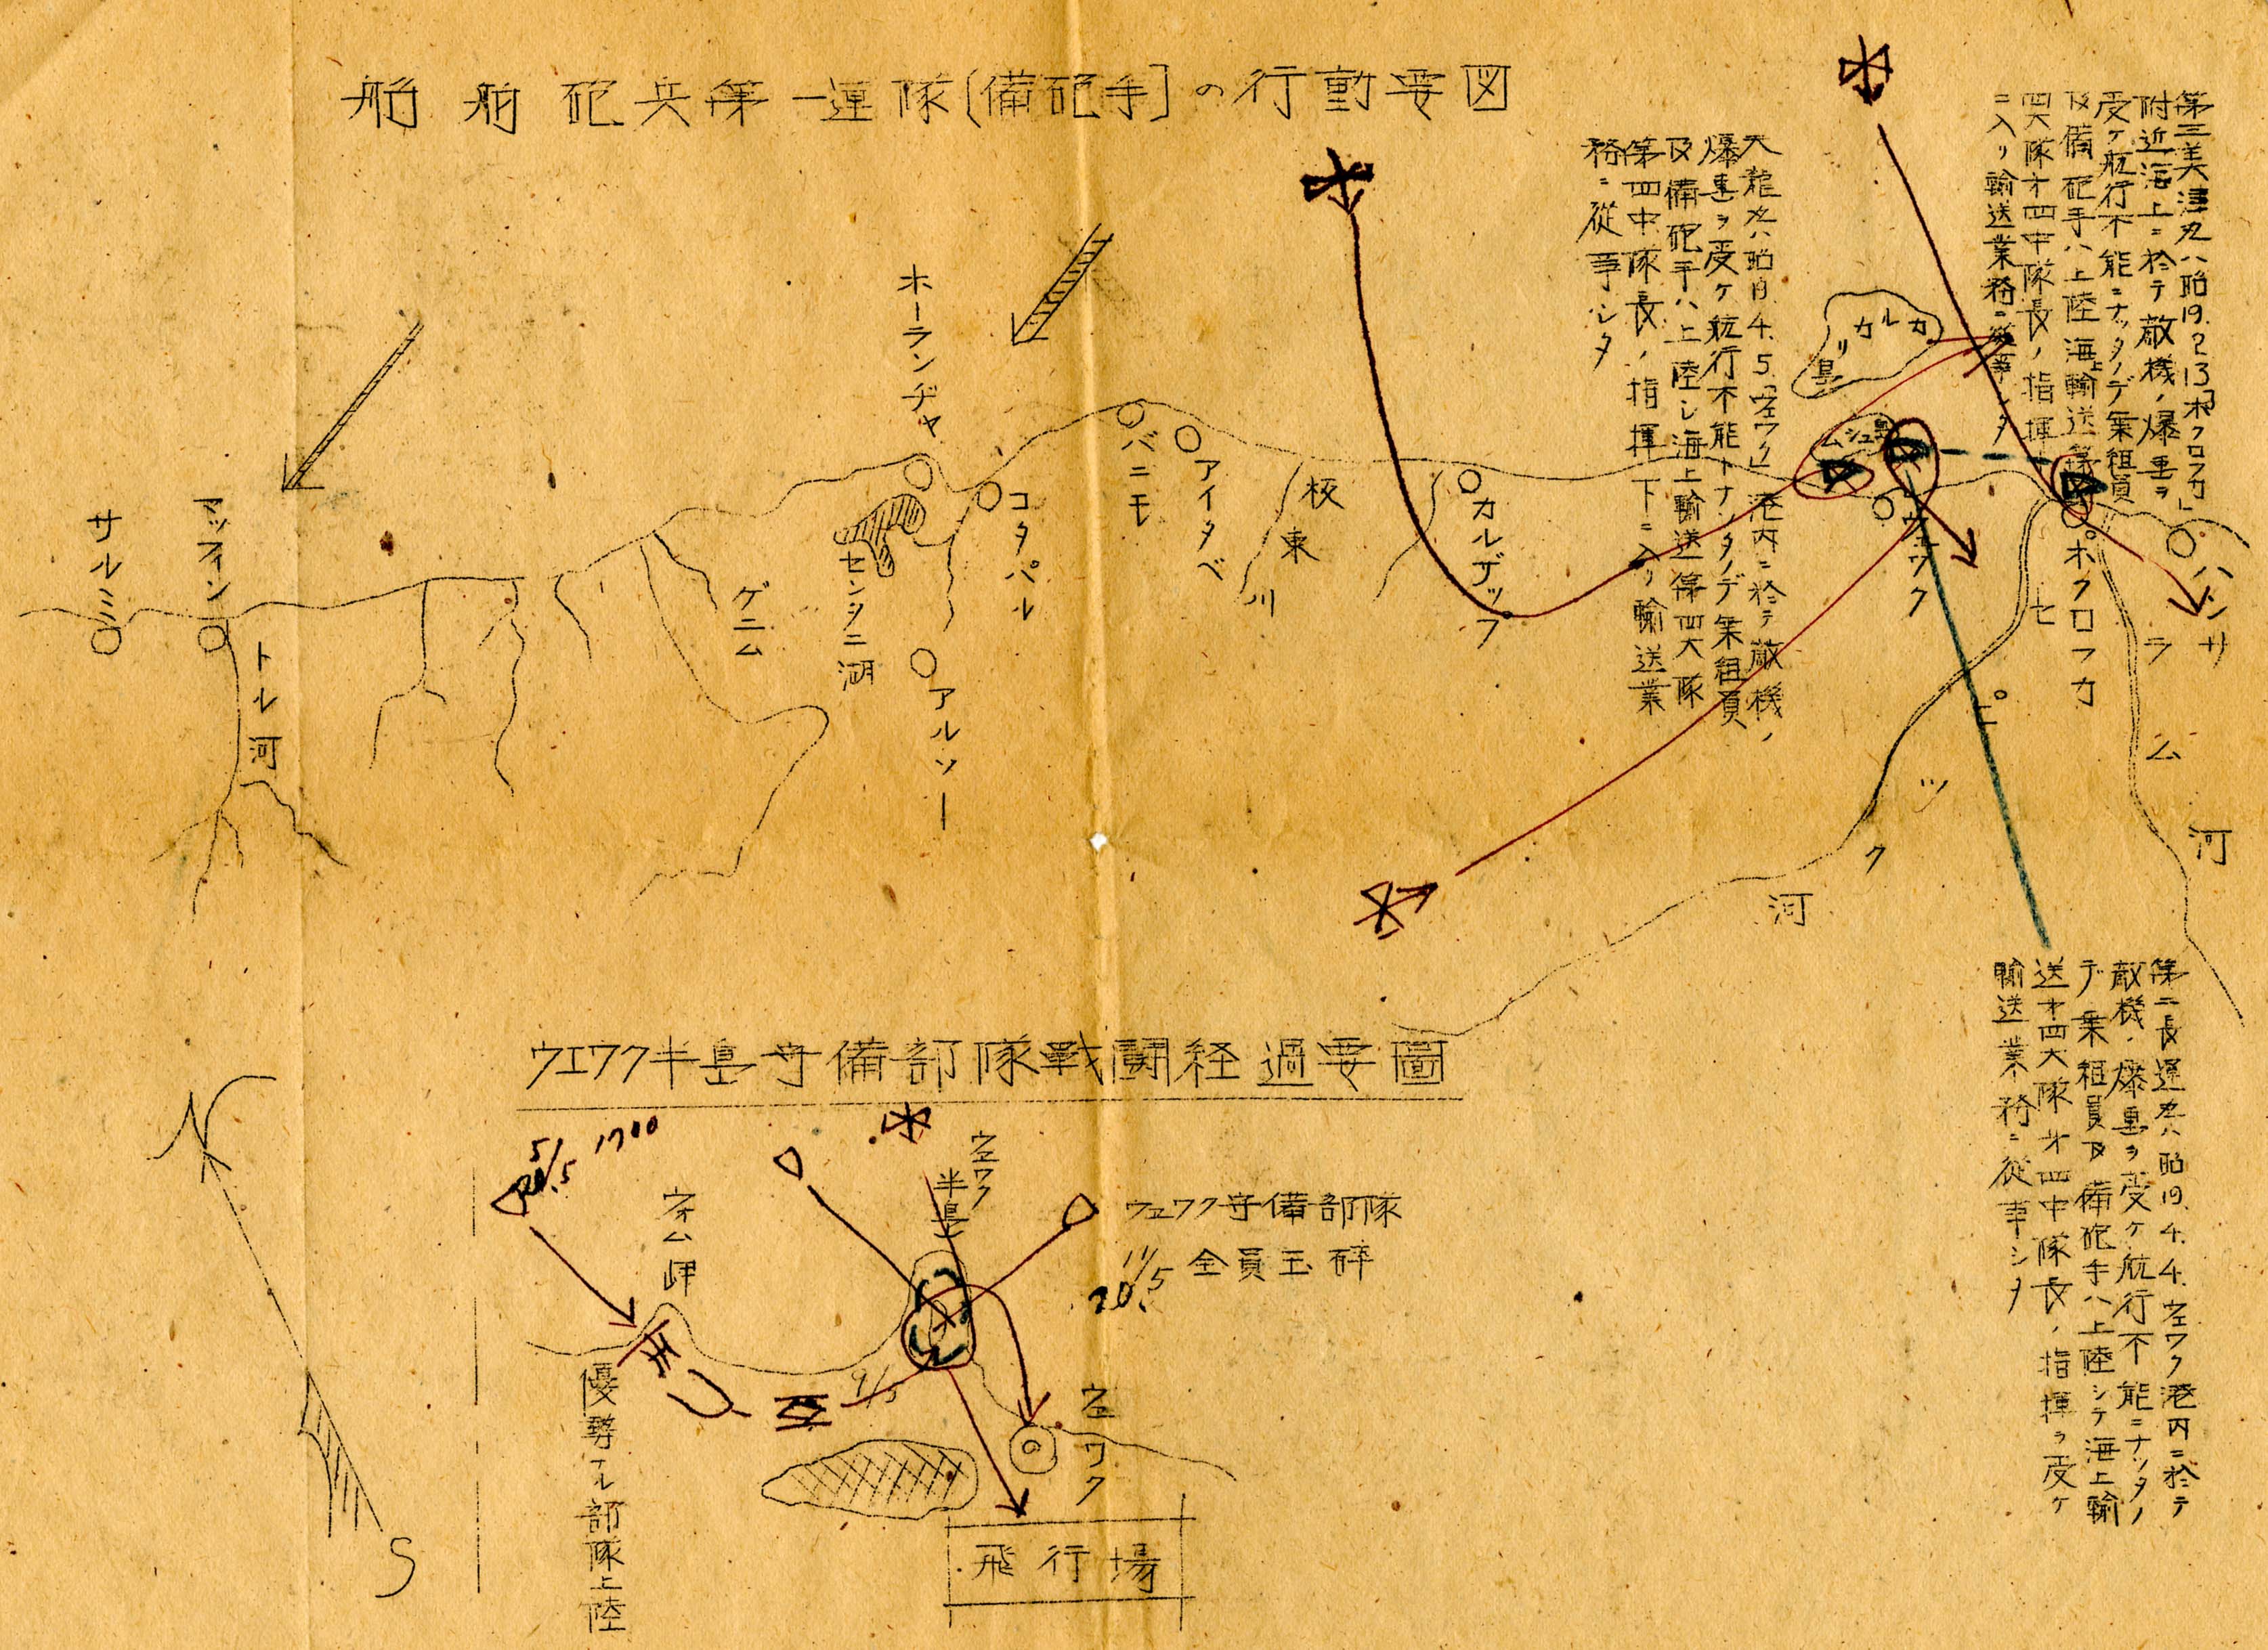 船舶砲兵第一連隊(備砲手)の行動要図
第三美津丸ハ昭19.2.13「ボクロフカ」
附近海上ニ於テ敵機ノ爆弾ヲ
受ケ航行不能ニナッタノデ乗組員
及備砲手ハ上陸海上輸送第
四大隊オ四中隊長ノ指揮
ニ入リ輸送業務ニ従事シタ
大龍丸ハ昭19.4.5.「ウエワク」港内ニ於テ敵機ノ
爆弾ヲ受ケ航行不能トナッタノデ乗組員
及備砲手ハ上陸シ海上輸送第四大隊
第四中隊長ノ指揮下ニ入リ輸送業
務ニ従事シタ
カルカリ島
ムシュ島
ホーランヂヤ
サルミ
マッフィン
トル河
ゲニム
センタニ湖
コタパル
アルソー
バニモ
アイタペ
坂東川
カルザップ
ウエワク
ボクロフカ
ハンサ
セピック河
ラム河
第二長運丸ハ昭19.4.4.ウエワク港内ニ於テ
敵機ノ爆弾ヲ受ケ航行不能ニナッタノ
デ乗組員及備砲手ハ上陸シテ海上輸
送オ四大隊オ四中隊長ノ指揮ヲ受ケ
輸送業務ニ従事シタ
ウエワク半島守備部隊戦闘経過要圖
N
S
5/20.5 1700
ウオム岬
優勢ナル部隊上陸
ウエワク半島
ウエワク守備部隊
11/20.5 全員玉砕
9/5
ウエワク
飛行場